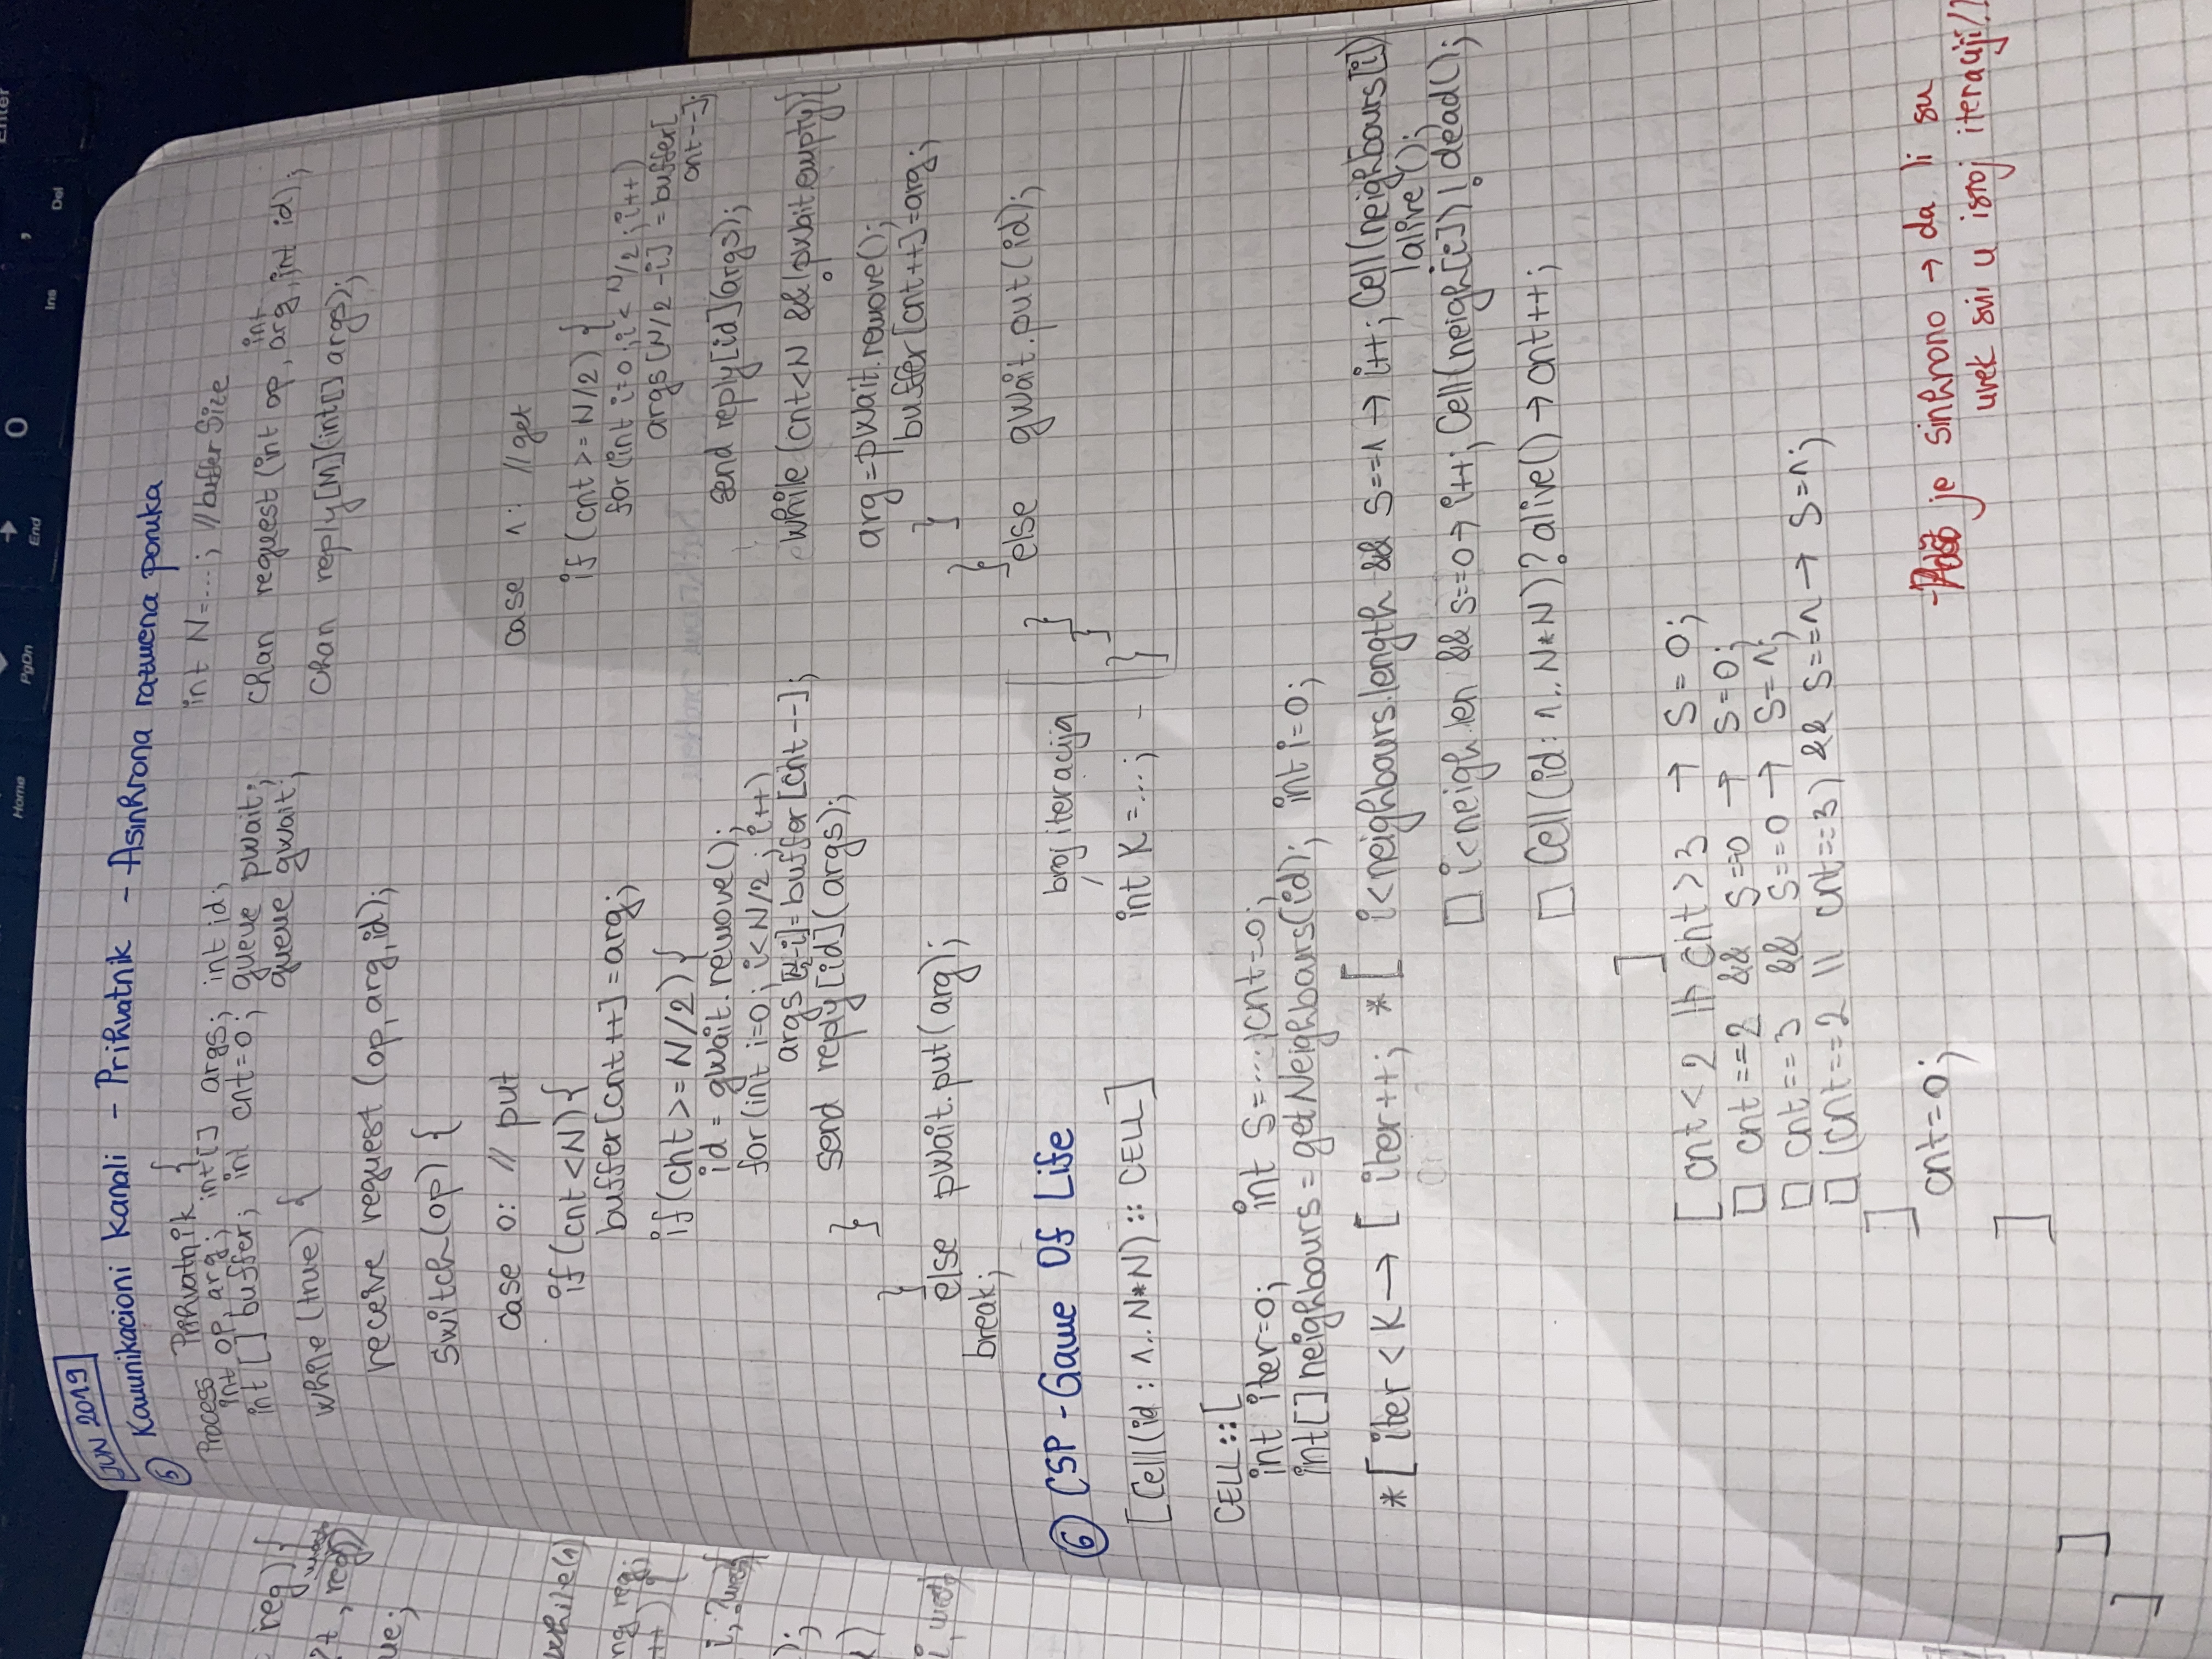 Home
PgDn
End
0
Ins
,
Del
Enter
JUN 2019
⑤ Komunikacioni kanali - Prihvatnik - Asinhrona razmena poruka
Process Prihvatnik {
int op, arg; int[] args; int id;
int [] buffer; int cnt=0; queue pwait;
queue gwait;
while (true) {
receive request (op, arg, id);
switch (op) {
case 0: // put
if (cnt < N) {
buffer[cnt++] = arg;
if (cnt >= N/2) {
id = gwait.remove();
for (int i=0; i<N/2; i++)
args [N/2-i] = buffer [cnt--];
send reply [id] (args);
}
}
else pwait.put(arg);
break;
int N=...; //buffer Size
chan request (int op, int arg, int id);
chan reply [M] (int[] args);
case 1: //get
if (cnt >= N/2) {
for (int i=0; i < N/2; i++)
args [N/2 -i] = buffer[
cnt--];
send reply [id] (args);
while (cnt<N && !pwait.empty) {
arg = pwait.remove();
buffer [cnt++] = arg;
}
}
else gwait.put(id);
}
}
}
⑥ CSP - Game Of Life
broj iteracija
[Cell(id : 1..N*N) :: CELL]
int K = ...;
CELL::[
int iter=0; int S=..., cnt=0;
int[] neighbours = getNeighbours(id); int i=0;
*[ iter < K → [ iter++; *[ i<neighbours.length && S==1 → i++; Cell(neighbours[i])
!alive();
□ i<neigh.len && s==0 → i++; Cell(neigh[i])! dead();
□ Cell(id: 1..N*N)?alive() → cnt++;
]
[ cnt < 2 || cnt > 3 → S = 0;
□ cnt==2 && S==0 → S=0;
□ cnt==3 && S==0 → S=1;
□ (cnt==2 || cnt==3) && S==1 → S=1;
]
cnt=0;
]
]
]
- Pošto je sinhrono → da li su
uvek svi u istoj iteraciji!?
reg) {
, reg)
ue;
while(1)
ng reg;
++) {
);